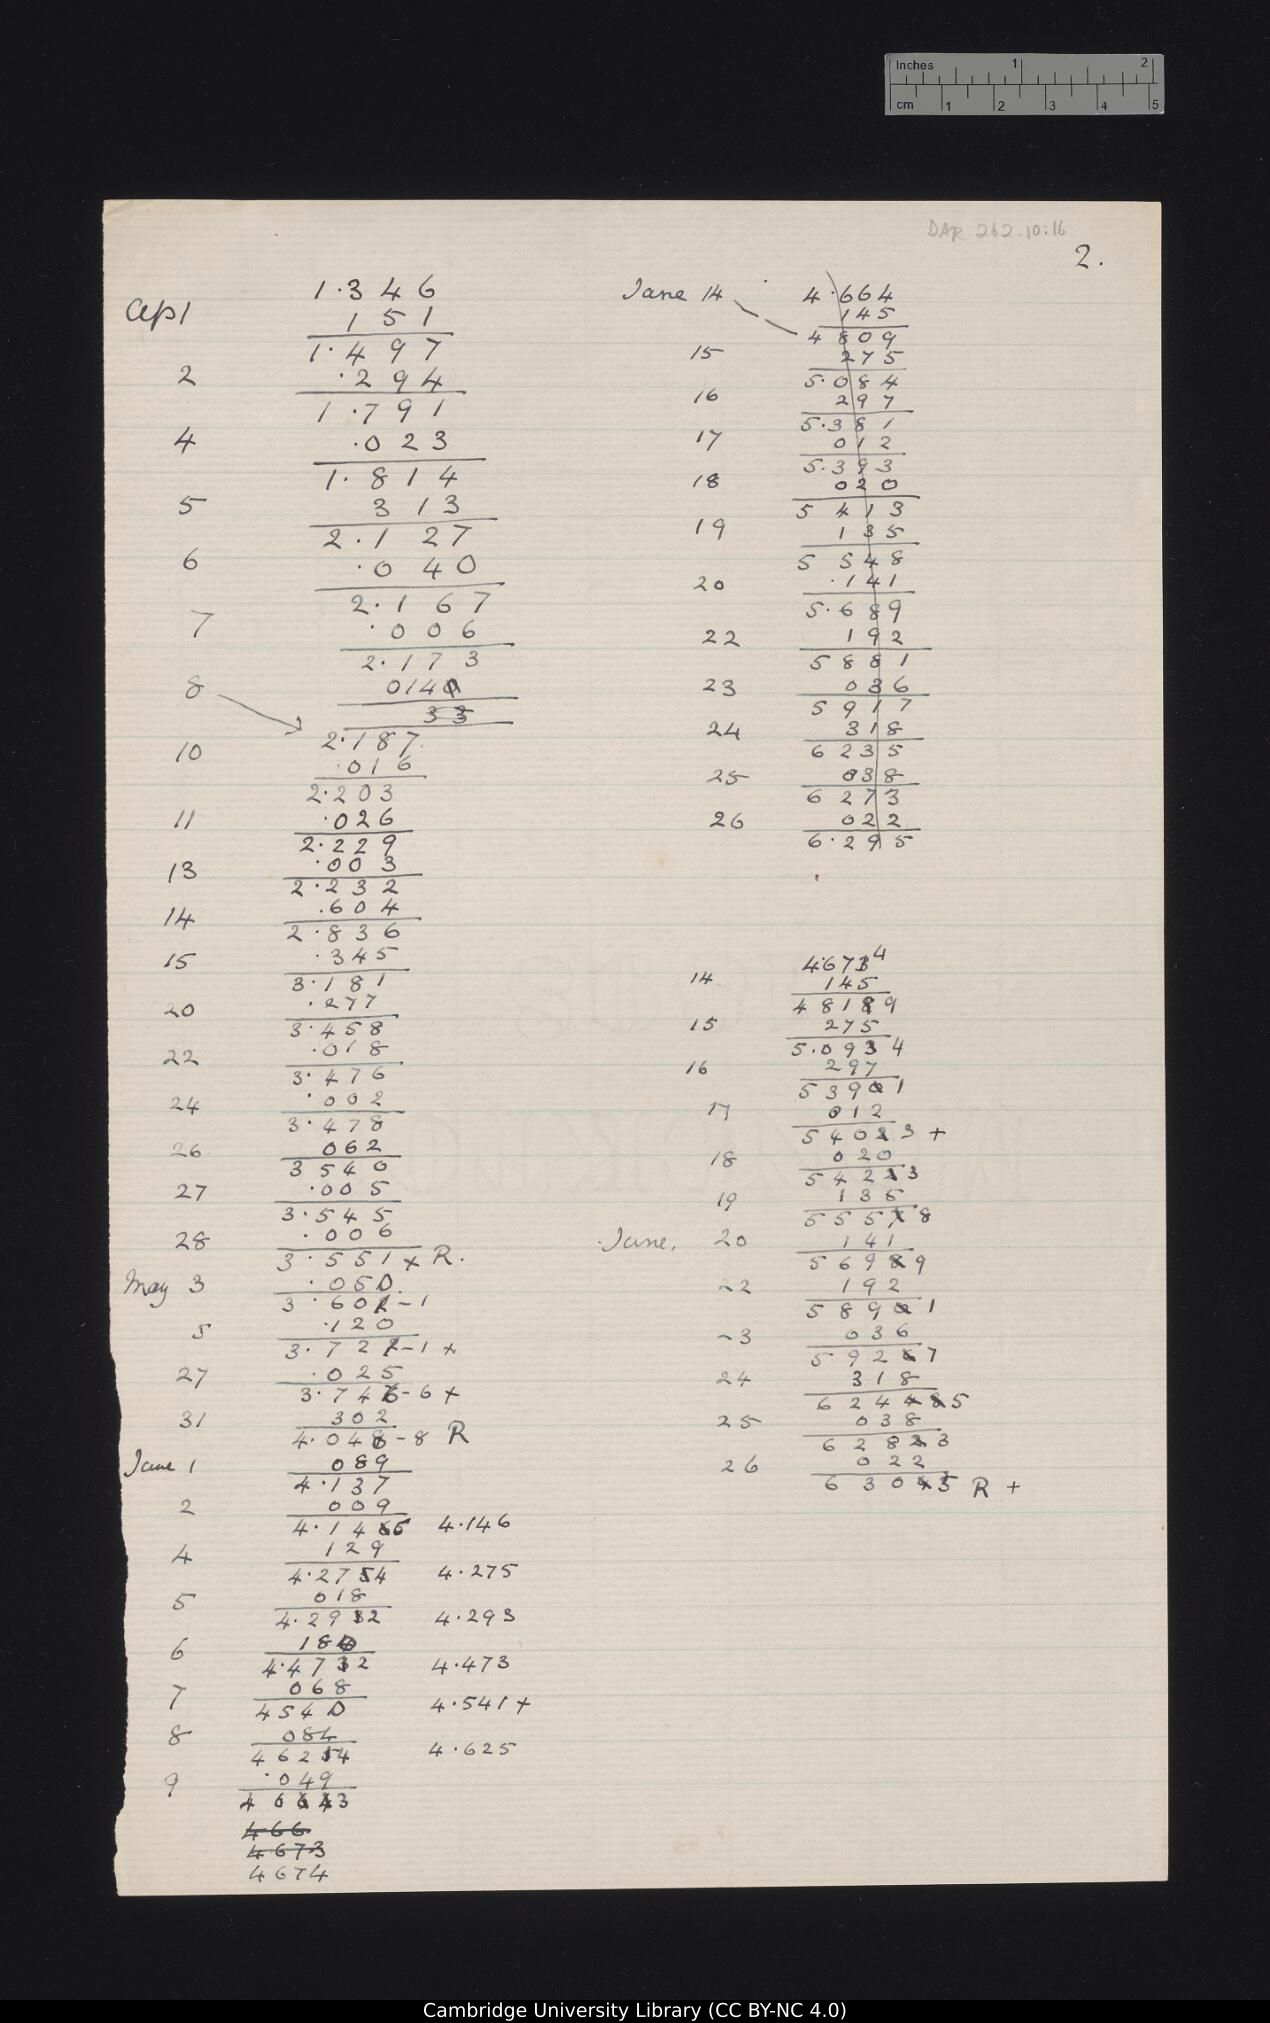 Inches 1 2
cm 1 2 3 4 5
DAR 262.10:16
2.
1.346
Ap 1 151
1.497
2 .294
1.791
4 .023
1.814
5 313
2.127
6 .040
2.167
7 .006
2.173
8 0140
33
2.187
10 .016
2.203
11 .026
2.229
13 .003
2.232
14 .604
2.836
15 .345
3.181
20 .277
3.458
22 .018
3.476
24 .002
3.478
26 062
3540
27 .005
3.545
28 .006
3.551 x R.
May 3 .050
3.602-1
5 .120
3.722-1 x
27 .025
3.746-6 +
31 302
4.048-8 R
June 1 089
4.137
2 009
4.1465 4.146
4 129
4.2754 4.275
5 018
4.2932 4.293
6 180
4.4732 4.473
7 068
4540 4.541 +
8 084
46254 4.625
9 .049
4 6 6 4 3
466
4673
4674
June 14 4.664
145
4809
15 275
5.084
16 297
5.381
17 012
5.393
18 020
5 413
19 135
5 548
20 .141
5.689
22 192
5881
23 036
5917
24 318
6235
25 038
6273
26 022
6.295
4.6734
14 145
48189
15 275
5.0934
16 297
53901
17 012
54023 +
18 020
54223
19 135
55578
June, 20 141
56989
22 192
58901
-3 036
59267
24 318
624485
25 038
62823
26 022
63045 R +
Cambridge University Library (CC BY-NC 4.0)